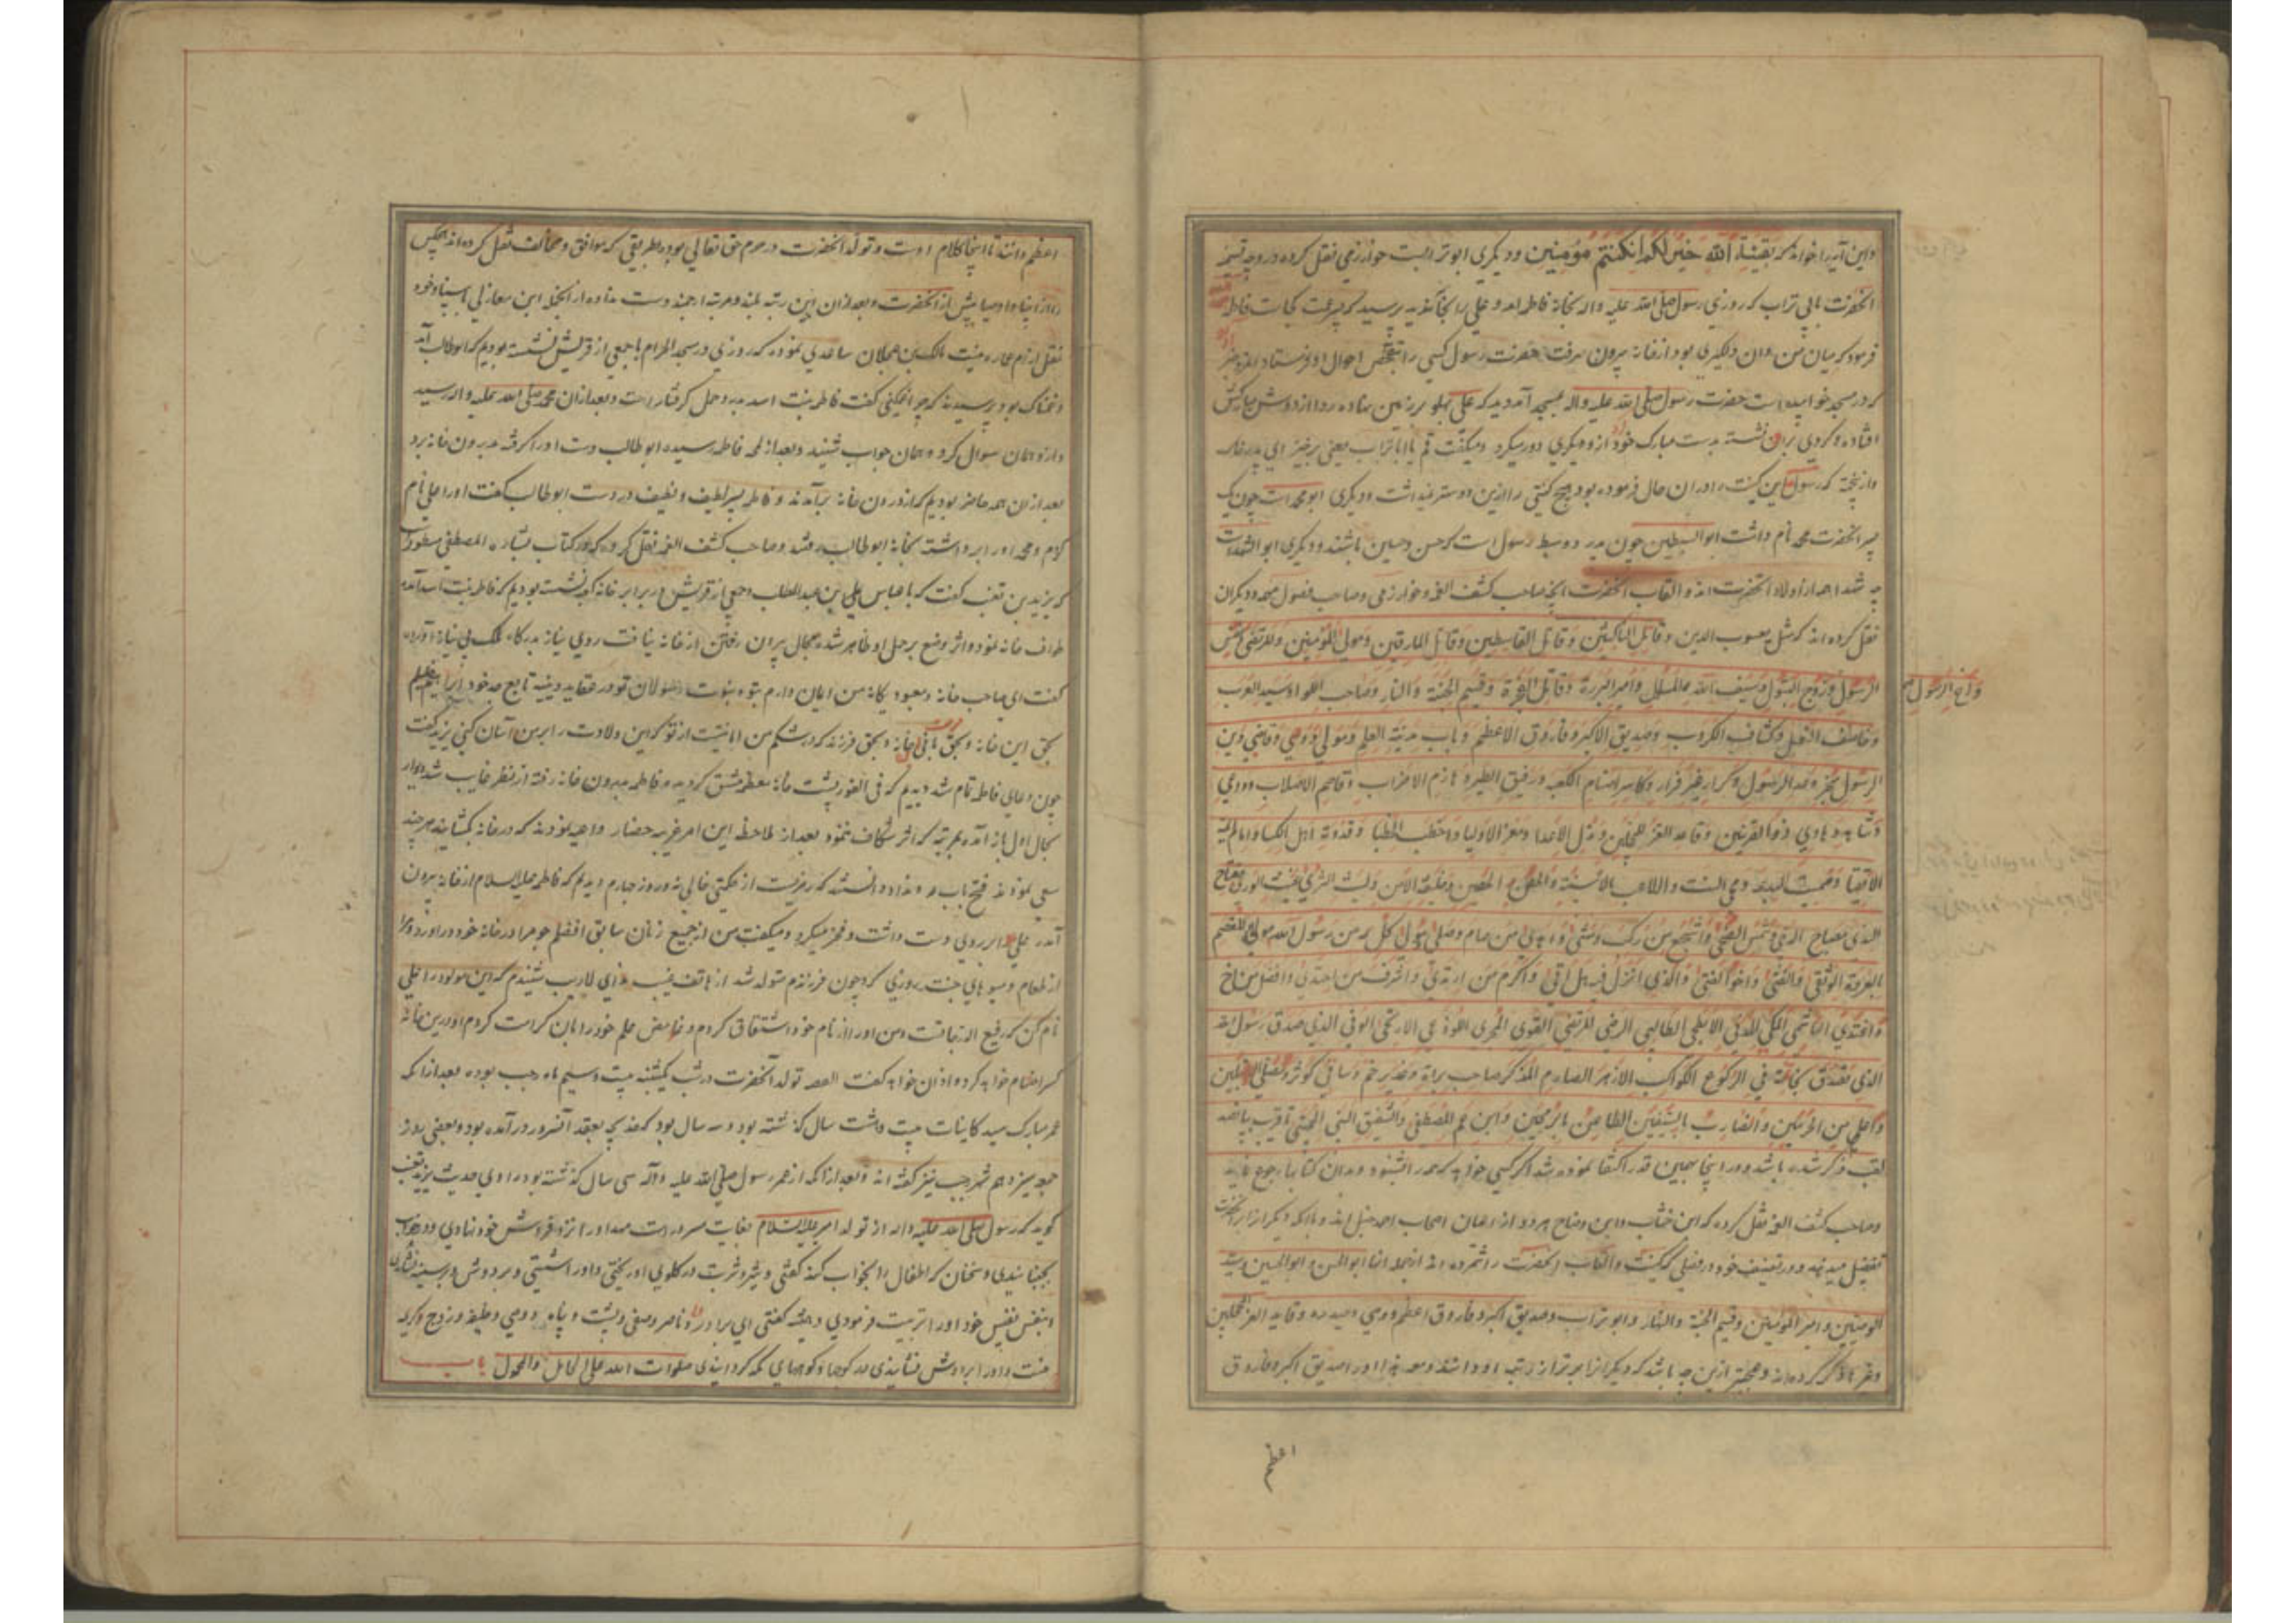 واین آیه را خواند که بقیة الله خیر لکم ان کنتم مؤمنین و دیگری ابو تراب است خوارزمی نقل کرده در وجه تسمیه
آنحضرت بابی تراب که روزی رسول صلی الله علیه واله بخانه فاطمه آمد و علی را آنجا ندید پرسید که پسر عمت کجاست فاطمه
فرمود که میان من و ان دلگیری بود از خانه بیرون رفت حضرت رسول کسی را بتفحص احوال او فرستاد
که در مسجد خوابیده است حضرت رسول صلی الله علیه واله بمسجد آمد دید که علی پهلو بر زمین نهاده ردا از دوش مبارکش
افتاده و گردی بران نشسته بدست مبارک خود از و گرد دور میکرد و میگفت قم یا ابا تراب یعنی برخیز ای پدر خاک
که رسول این کنیت را در ان حال فرموده بود هیچ کنیتی را ازین دوستر نمیداشت و دیگری ابو محمد است چون یک
پسر آنحضرت محمد نام داشت ابو السبطین چون پدر دو سبط رسول است که حسن و حسین باشند و دیگری ابو الشهداست
چه شهدا همه از اولاد آنحضرت اند و القاب آنحضرت آنچه صاحب کشف الغمه و خوارزمی وصاحب فصول مهمه و دیگران
نقل کرده اند که مثل یعسوب الدین وقاتل الناکثین وقاتل القاسطین وقاتل المارقین ومولی المؤمنین والمرتضی ونفس
الرسول وزوج البتول وسیف الله المسلول وامیر البررة وقاتل الفجرة وقسیم الجنة والنار وصاحب اللواء وسید العرب
واخ الرسول
وخاصف النعل وکشاف الکروب وصدیق الاکبر وفاروق الاعظم وباب مدینة العلم ومولی ووصی وقاضی دین
الرسول ومنجز وعد الرسول وکرار غیر فرار وکاسر اصنام الکعبه ورفیق الطیر وهازم الاحزاب وقاصم الاصلاب وداعی
وشاهد وهادی وذو القرنین وقاید الغر المحجلین ومذل الاعدا ومعز الاولیا واخطب الخطبا وقدوة اهل الکسا وامام الایمة
الاتقیا وممیت البدعة ومحی السنة واللاعب بالاسنة والحصن الحصین وخلیفة الامین ولیث الثری وغیث الوری ومفتاح
الندی ومصباح الدجی وشمس الضحی واشجع من رکب ومشی واهدی من صام وصلی مولی کل من له رسول الله مولی المعتصم
بالعروة الوثقی والفتی واخو الفتی والذی انزل فیه هل اتی واکرم من ارتدی واشرف من احتذی وافضل من راح
واغتدی الهاشمی المکی المدنی الابطحی الطالبی الرضی المرتضی القوی الجری اللوذعی الاریحی الوفی الذی صدق رسول الله
الذی تصدق بخاتمه فی الرکوع الکوکب الازهر الصارم الذکر صاحب براة وغدیر خم وساقی کوثر ومصلی القبلتین
واعلم من فی الحرمین والضارب بالسیفین الطاعن بالرمحین وابن عم المصطفی والشقیق النبی المجتبی تا قریب بپانصد
لقب ذکر شده باشد و در اینجا بهمین قدر اکتفا نموده شد اگر کسی خواهد که همه را بشنود بدان کتابها رجوع نماید
وصاحب کشف الغمه نقل کرده که ابن خشاب وابن وضاح هر دو از اعیان اصحاب احمد حنبل اند
تفضیل میدهند و در تصنیف خود در فصلی که کنیت والقاب آنحضرت را شمرده اند از جمله آنها ابو الحسن وابو الحسین وسید
الوصیین وامیر المؤمنین وقسیم الجنة والنار وابو تراب وصدیق اکبر وفاروق اعظم ووصی وحیدره وقاید الغر المحجلین
وغیر ها ذکر کرده اند وعجبتر ازین چه باشد که دیگرانرا برتر از رتبه او دانند ومع هذا او را صدیق اکبر وفاروق
اعظم
اعظم دانند تا اینجا کلام اوست وتولد آنحضرت در حرم حق تعالی بوده بطریقی که موافق ومخالف نقل کرده اند هیچکس
را از انبیا واوصیا پیش از آنحضرت وبعد از ان این رتبه بلند ومرتبه ارجمند دست نداده از انجمله ابن مغازلی باسناد خود
نقل از ام عماره بنت مالک بن عجلان ساعدی نموده که روزی در مسجد الحرام با جمعی از قریش نشسته بودیم که ابو طالب آمد
وغمناک بود پرسیدند که چرا غمگینی گفت فاطمه بنت اسد بدرد حمل گرفتار است وبعد از ان محمد صلی الله علیه واله رسید
واز و همان سوال کرد و همان جواب شنید وبعد از لمحه فاطمه رسیده ابو طالب دست او را گرفته بدرون خانه برد
بعد از ان همه حاضر بودیم که از درون خانه برآمدند وفاطمه پسر لطیف ونظیف در دست ابو طالب گفت او را علی نام
کردم ومحمد او را برداشته بخانه ابو طالب رفتند وصاحب کشف الغمه نقل کرده که در کتاب بشارة المصطفی مسطورست
که یزید بن قعنب گفت که با عباس بن عبد المطلب وجمعی از قریش در برابر خانه کعبه نشسته بودیم که فاطمه بنت اسد آمده
طواف خانه نمود واثر وضع حمل بر او ظاهر شده مجال بیرون رفتن از خانه نیافت روی نیاز بدرگاه ملک بی نیاز آورده
گفت ای صاحب خانه ومعبود یگانه من ایمان دارم بتو وبنبوت رسولان تو ودر عقاید دینیه تابع جد خود ابراهیم خلیلم
بحق این خانه وبحق بانی این خانه وبحق فرزندی که در شکم من امانتیست از تو که این ولادت را بر من آسان کنی یزید گفت
چون دعای فاطمه تمام شد دیدیم که فی الفور پشت خانه معظمه شق گردیده فاطمه بدرون خانه رفته از نظر غایب شد ودیوار
بحال اول باز آمده بمرتبه که اثر شکاف ننمود بعد از ملاحظه این امر غریب حضار داعیه نمودند که در خانه بگشایند هر چند
سعی نمودند فتح باب رو نداد دانستند که این سریست از حکمتی خالی نه روز چهارم دیدیم که فاطمه علیها السلام از خانه بیرون
آمد علی را بر روی دست داشت وفخر میکرد ومیگفت من از جمیع زنان سابق افضلم چه مرا در خانه خود درآورد ومرا
از طعام ومیوهای جنت روزی کرد چون فرزندم متولد شد از هاتف غیب ندای لاریب شنیدم که این مولود را علی
نام کن که رفیع الدرجاتست ومن او را از نام خود اشتقاق کردم وغامض علم خود را بان کرامت کردم او درین خانه
کسر اصنام خواهد کرد واذان خواهد گفت القصه تولد آنحضرت در شب یکشنبه بیست وسیم ماه رجب بوده بعد از آنکه
عمر مبارک سید کاینات بیست وهشت سال گذشته بود وسه سال بود که خدیجه بعقد آنسرور درآمده بود وبعضی روز
جمعه سیزدهم شهر رجب نیز گفته اند وبعد از آنکه از عمر رسول صلی الله علیه وآله سی سال گذشته بود راوی حدیث یزید بن قعنب
گوید که رسول صلی الله علیه واله از تولد امیر علیه السلام بغایت مسرور است مهد او را نزد فراش خود نهادی
بجنبانیدی وسخنان که اطفال را بخواب کند گفتی وشیر وشربت در گلوی او ریختی واو را شستی وبر دوش وبر سینه نشانیدی
وبنفس نفیس خود او را تربیت فرمودی وهمیشه گفتی ای برادر وناصر وصفی وپشت وپناه ووصی وخلیفه وزوج کریمه
منست واو را بر دوش نشانیدی در کوهها وکوچهای مکه گردانیدی صلوات الله علی الحامل والمحمول باب